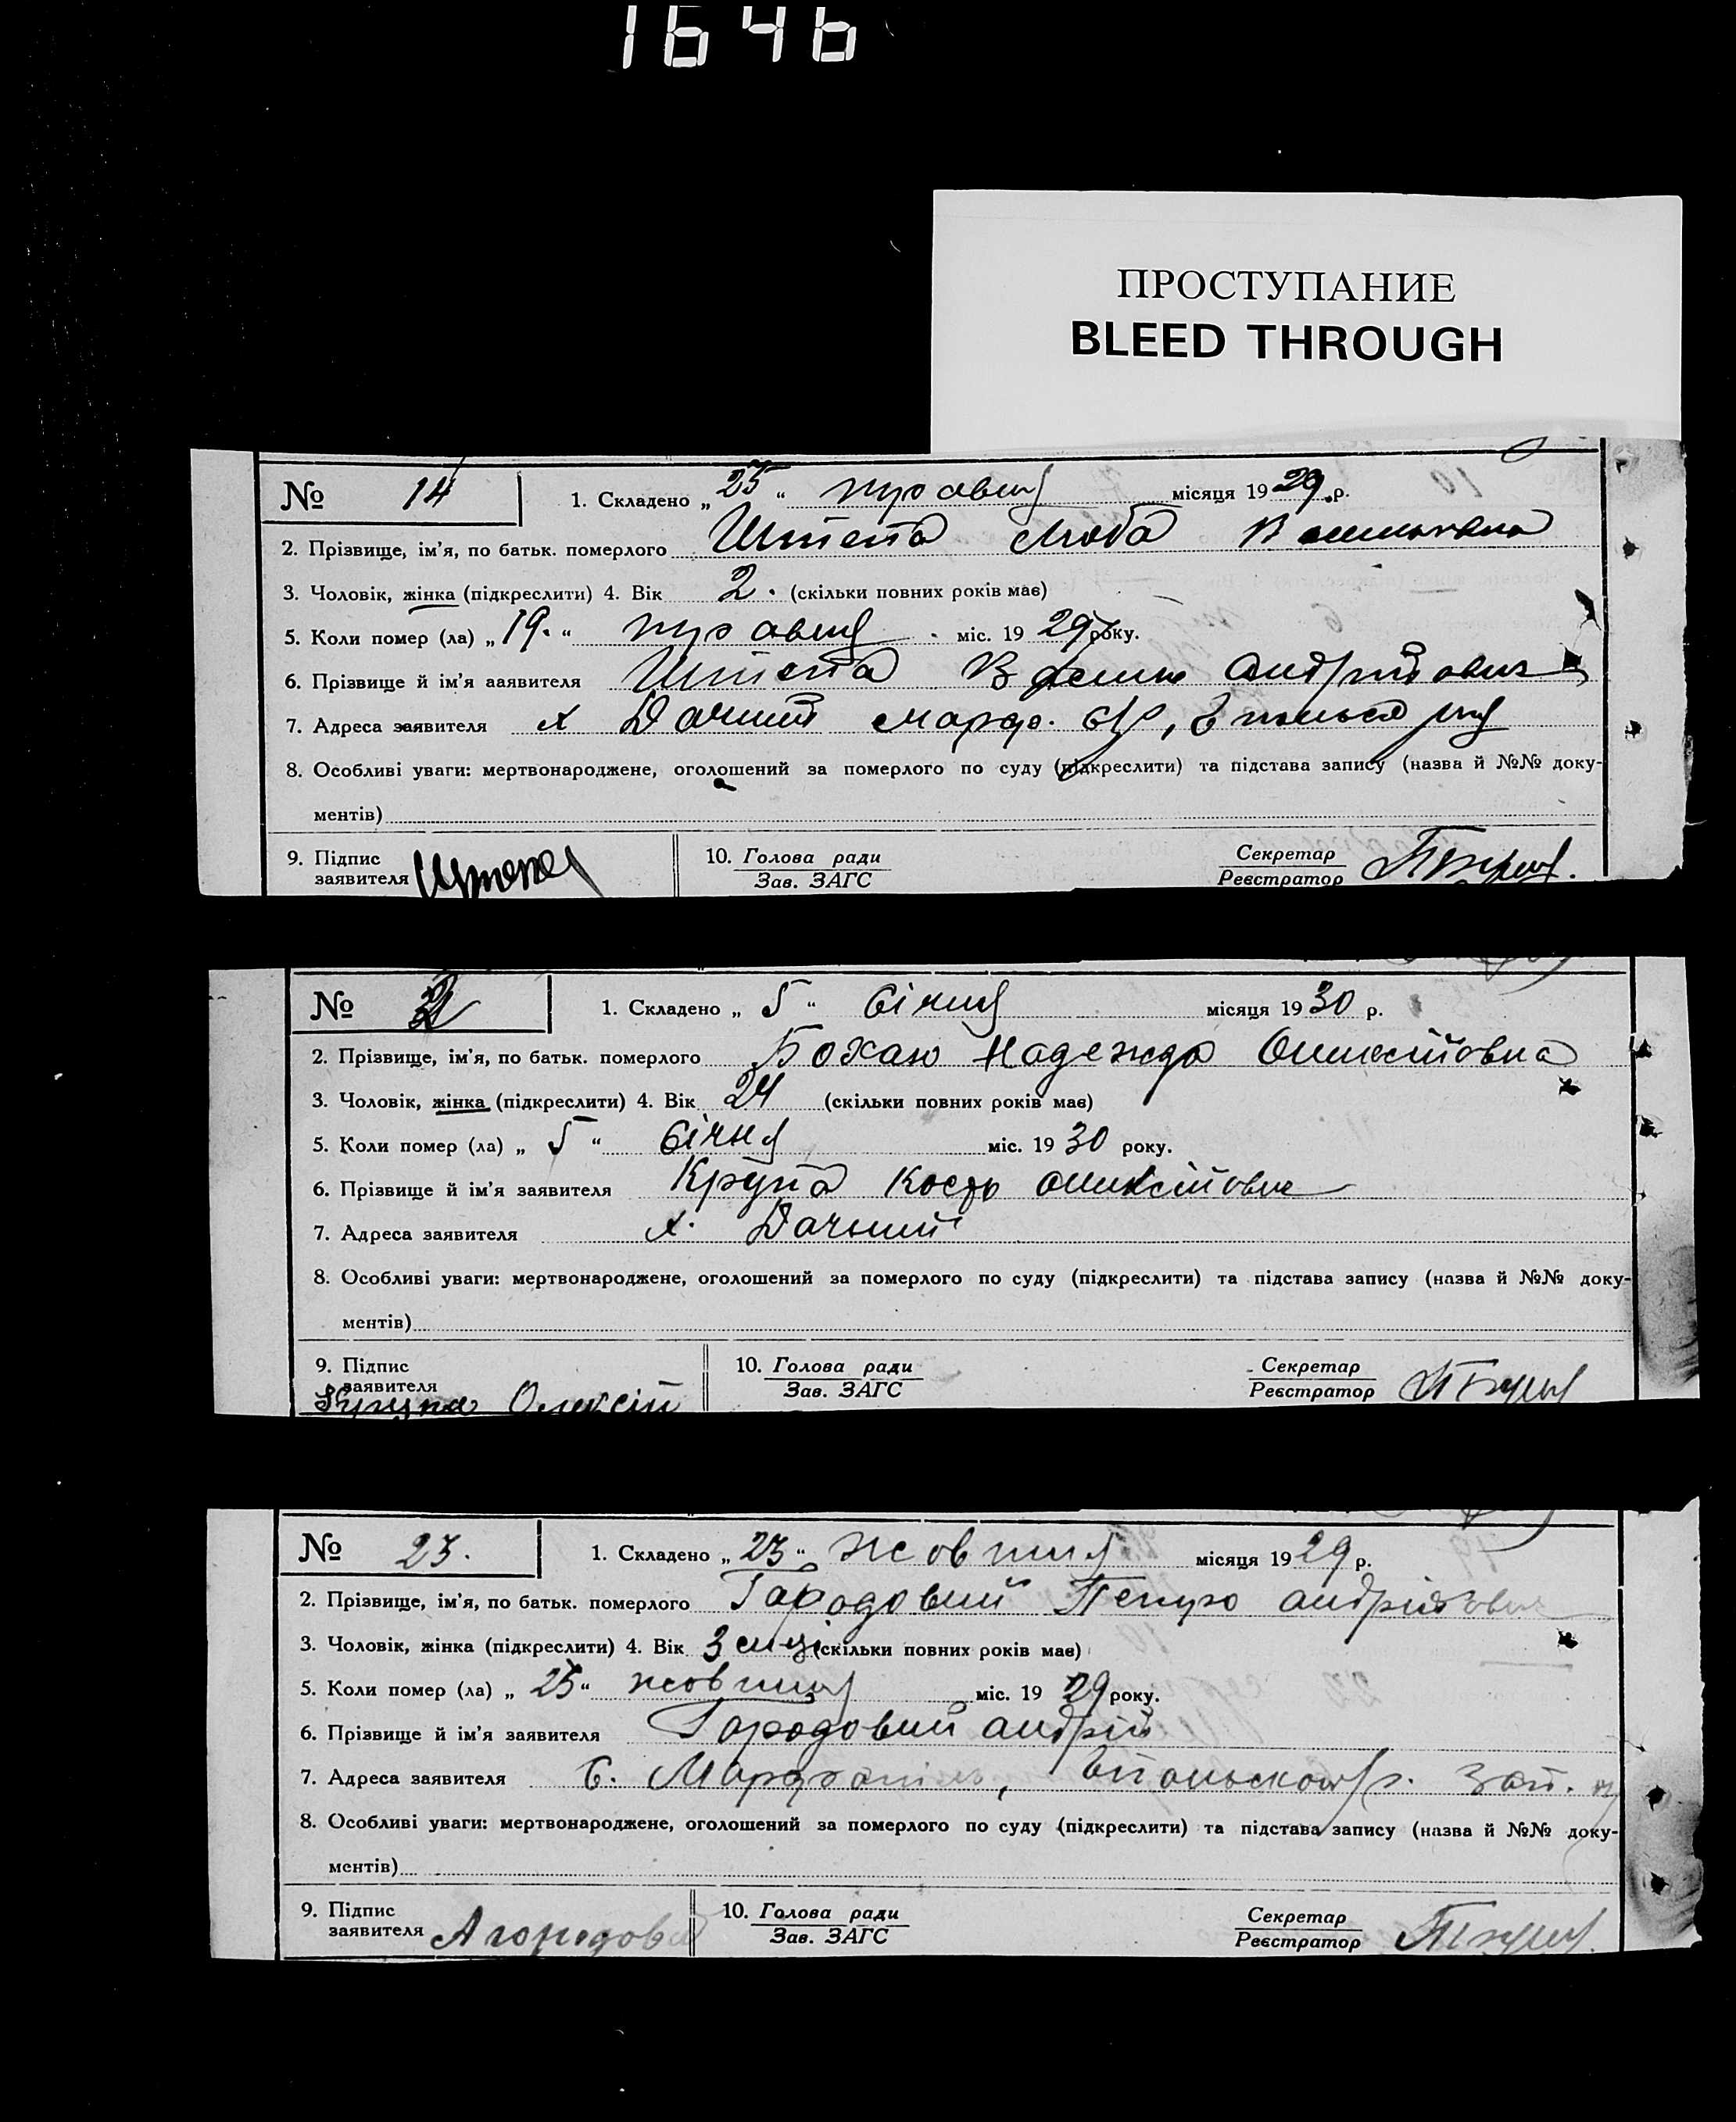 1646
ПРОСТУПАНИЕ
BLEED THROUGH
№ 14 1. Складено „ 25 “ травня місяця 19 29. р.
2. Прізвище, ім’я, по батьк. померлого Штепа Люба Васильвна
3. Чоловік, жінка (підкреслити) 4. Вік 2. (скільки повних років має)
5. Коли помер (ла) „ 19. “ травня міс. 19 29 року.
6. Прізвище й ім’я заявителя Штепа Василь Андрійович
7. Адреса заявителя х Дачний
8. Особливі уваги: мертвонароджене, оголошений за померлого по суду (підкреслити) та підстава запису (назва й №№ доку-
ментів)
9. Підпис 10. Голова ради Секретар
заявителя Штепа Зав. ЗАГС Реєстратор
№ 2 1. Складено „ 5 “ січня місяця 19 30 р.
2. Прізвище, ім’я, по батьк. померлого Бохан Надежда Олексійовна
3. Чоловік, жінка (підкреслити) 4. Вік 24 (скільки повних років має)
5. Коли помер (ла) „ 5 “ січня міс. 19 30 року.
6. Прізвище й ім’я заявителя Крупа Олексійович
7. Адреса заявителя х. Дачний
8. Особливі уваги: мертвонароджене, оголошений за померлого по суду (підкреслити) та підстава запису (назва й №№ доку-
ментів)
9. Підпис 10. Голова ради Секретар
заявителя Зав. ЗАГС Реєстратор
Крупа Олексій
№ 23. 1. Складено „ 23 “ жовтня місяця 19 29 р.
2. Прізвище, ім’я, по батьк. померлого Городовий Петро Андрійович
3. Чоловік, жінка (підкреслити) 4. Вік 3 (скільки повних років має)
5. Коли помер (ла) „ 25 “ жовтня міс. 19 29 року.
6. Прізвище й ім’я заявителя Городовий Андрій
7. Адреса заявителя С.
8. Особливі уваги: мертвонароджене, оголошений за померлого по суду (підкреслити) та підстава запису (назва й №№ доку-
ментів)
9. Підпис 10. Голова ради Секретар
заявителя А Зав. ЗАГС Реєстратор